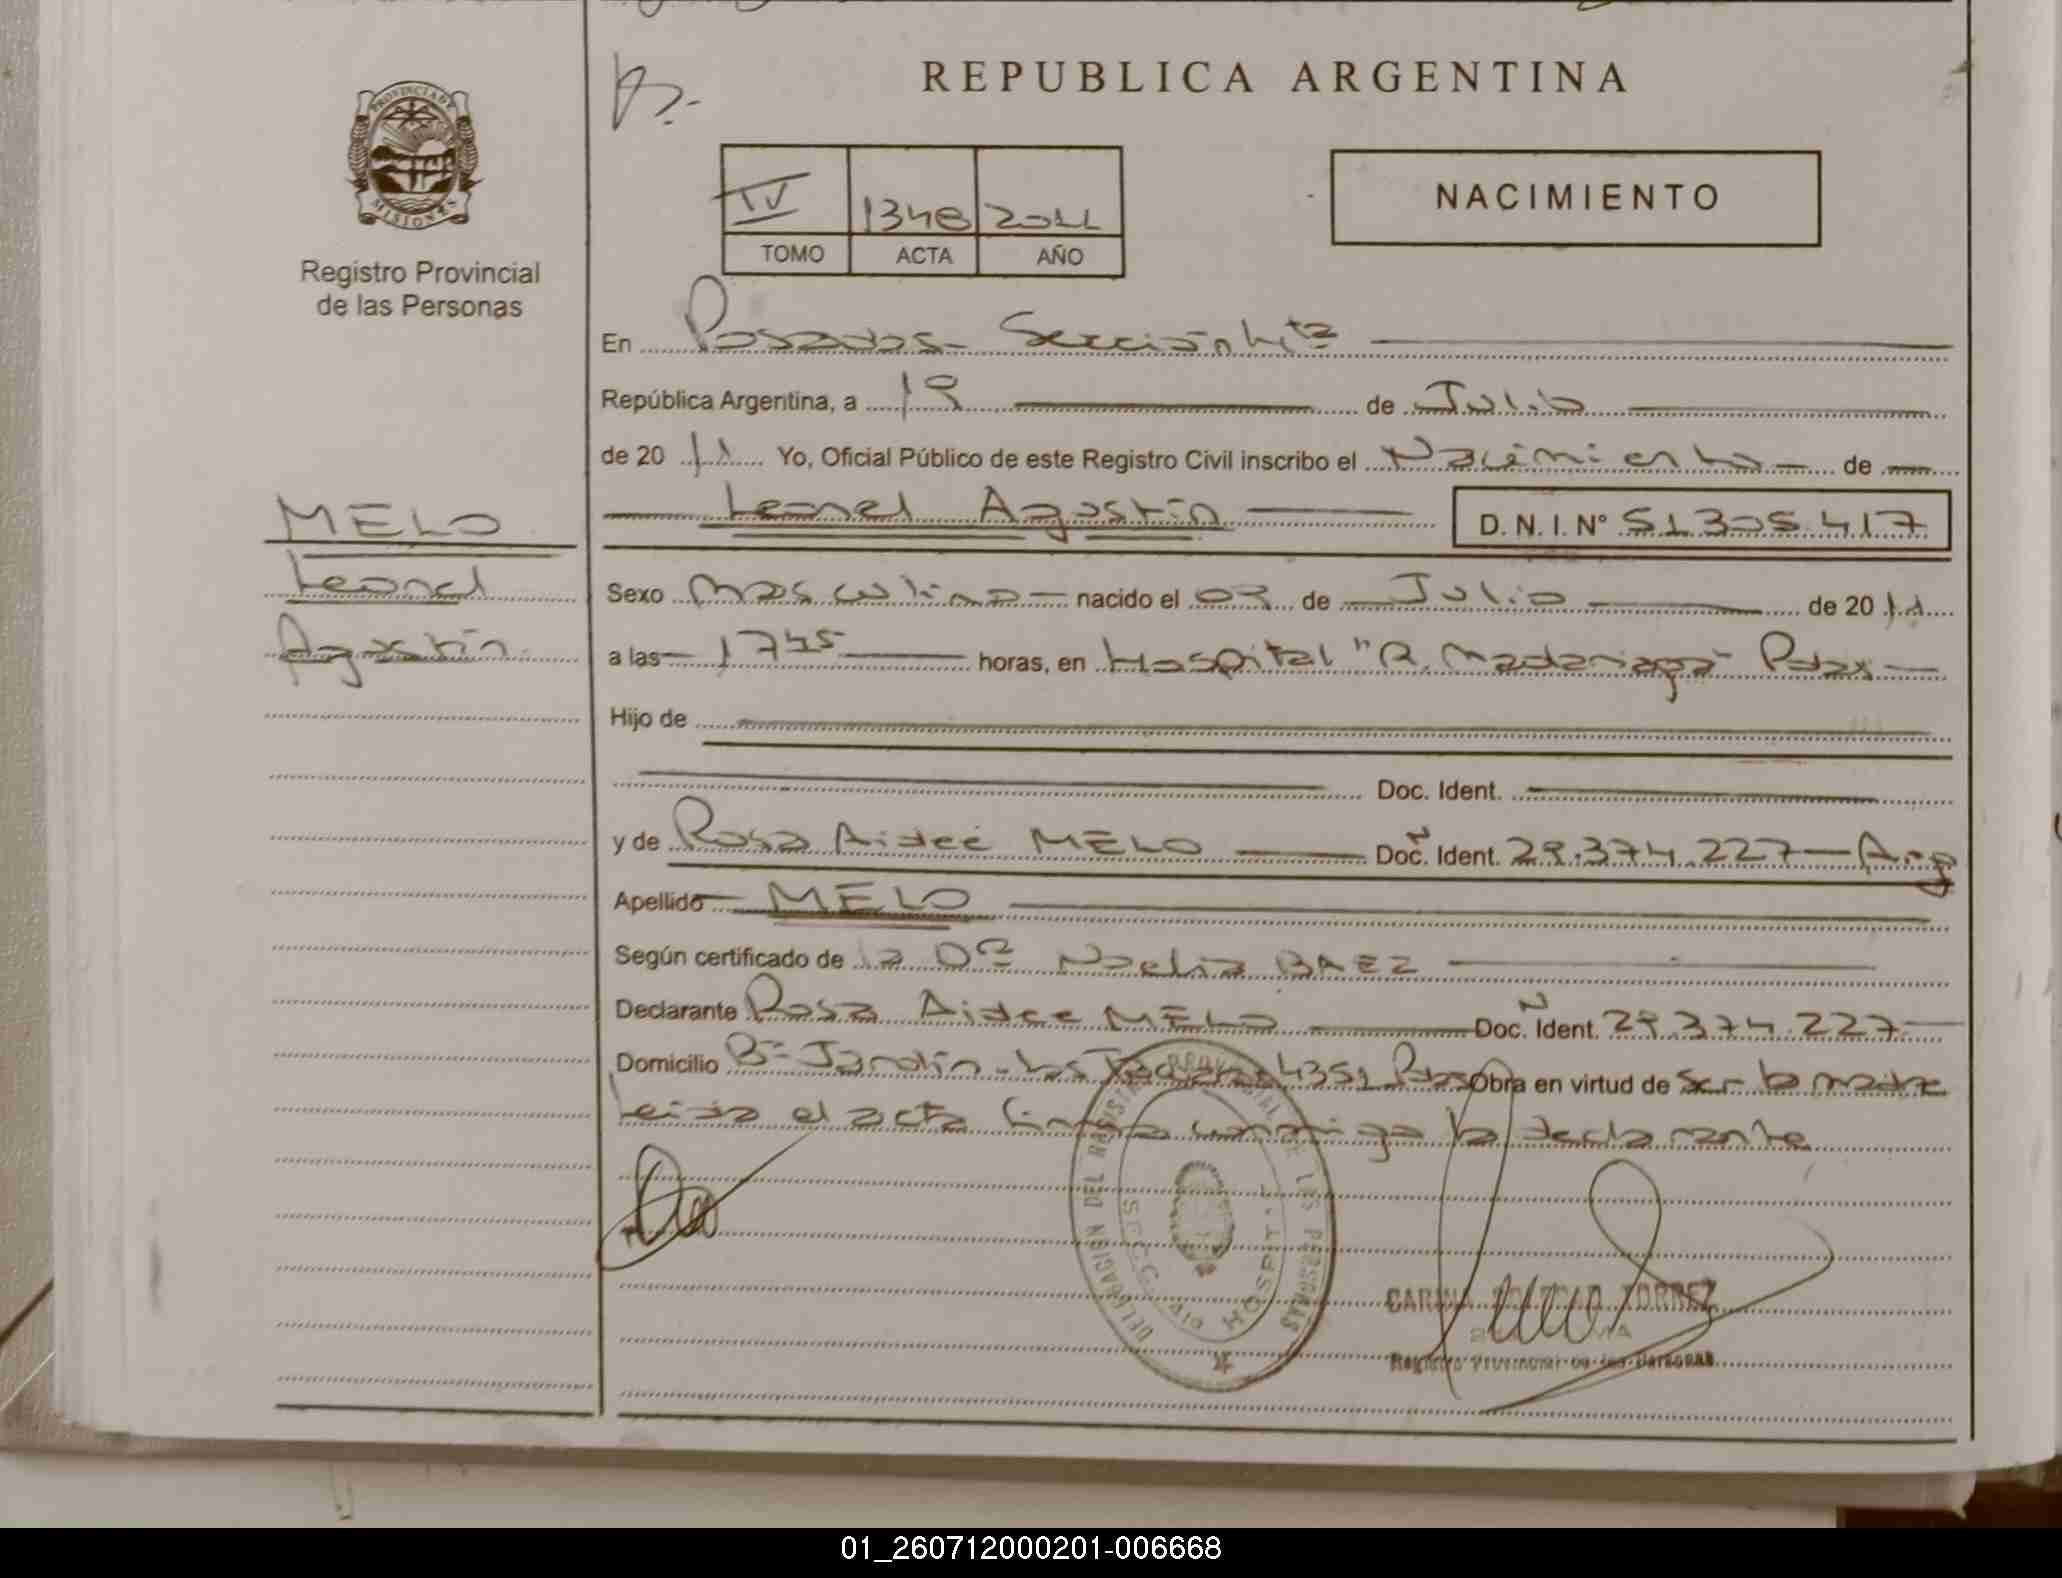 REPUBLICA ARGENTINA
PROVINCIA DE
MISIONES
Registro Provincial
de las Personas
IV 1348 2011
TOMO ACTA AÑO
NACIMIENTO
En Posadas- Sección 4ta
República Argentina, a 19 de Julio
de 20 11 Yo, Oficial Público de este Registro Civil inscribo el Nacimiento de
Leonel Agustín D. N. I. N° 51305.417
MELO
Leonel
Agustín
Sexo Masculino nacido el 02 de Julio de 20 11
a las 1745 horas, en Hospital "R. Madariaga" Pdas
Hijo de
Doc. Ident.
y de Rosa Aideé MELO Doc. Ident. 29.374.227 - Arg
Apellido MELO
Según certificado de la Dra Noelia BAEZ
Declarante Rosa Aidee MELO Doc. Ident. 29.374.227
Domicilio B° Jardín - Las 4351 Pdas Obra en virtud de ser la madre
Leida el acta firma conmigo la declarante
DELEGACION DEL REGISTRO PROVINCIAL DE LAS PERSONAS
SECC. HOSPIT.
TORREZ
Registro Provincial de las Personas
01_260712000201-006668